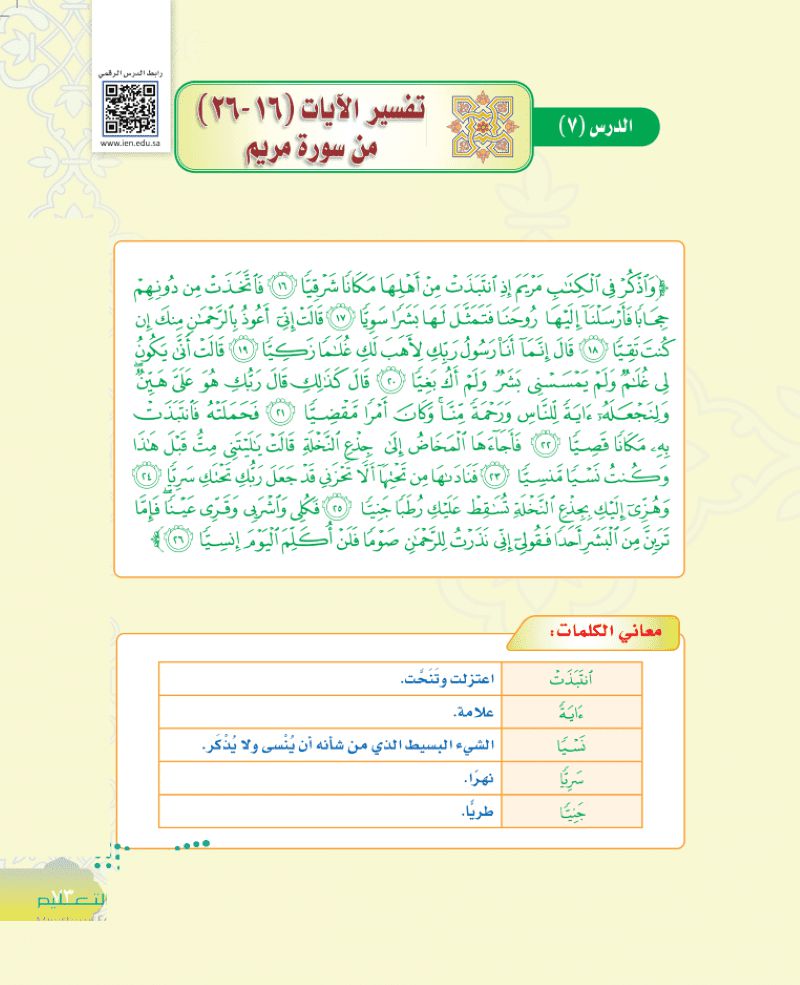 رابط الدرس الرقمي
www.ien.edu.sa
الدرس (٧)
تفسير الآيات (١٦-٢٦)
من سورة مريم
﴿وَٱذْكُرْ فِي ٱلْكِتَٰبِ مَرْيَمَ إِذِ ٱنتَبَذَتْ مِنْ أَهْلِهَا مَكَانًا شَرْقِيًّا ١٦ فَٱتَّخَذَتْ مِن دُونِهِمْ
حِجَابًا فَأَرْسَلْنَآ إِلَيْهَا رُوحَنَا فَتَمَثَّلَ لَهَا بَشَرًا سَوِيًّا ١٧ قَالَتْ إِنِّيٓ أَعُوذُ بِٱلرَّحْمَٰنِ مِنكَ إِن
كُنتَ تَقِيًّا ١٨ قَالَ إِنَّمَآ أَنَا۠ رَسُولُ رَبِّكِ لِأَهَبَ لَكِ غُلَٰمًا زَكِيًّا ١٩ قَالَتْ أَنَّىٰ يَكُونُ
لِي غُلَٰمٌ وَلَمْ يَمْسَسْنِي بَشَرٌ وَلَمْ أَكُ بَغِيًّا ٢٠ قَالَ كَذَٰلِكِ قَالَ رَبُّكِ هُوَ عَلَيَّ هَيِّنٌۖ
وَلِنَجْعَلَهُۥٓ ءَايَةً لِّلنَّاسِ وَرَحْمَةً مِّنَّاۚ وَكَانَ أَمْرًا مَّقْضِيًّا ٢١ فَحَمَلَتْهُ فَٱنتَبَذَتْ
بِهِۦ مَكَانًا قَصِيًّا ٢٢ فَأَجَآءَهَا ٱلْمَخَاضُ إِلَىٰ جِذْعِ ٱلنَّخْلَةِ قَالَتْ يَٰلَيْتَنِي مِتُّ قَبْلَ هَٰذَا
وَكُنتُ نَسْيًا مَّنسِيًّا ٢٣ فَنَادَىٰهَا مِن تَحْتِهَآ أَلَّا تَحْزَنِي قَدْ جَعَلَ رَبُّكِ تَحْتَكِ سَرِيًّا ٢٤
وَهُزِّيٓ إِلَيْكِ بِجِذْعِ ٱلنَّخْلَةِ تُسَٰقِطْ عَلَيْكِ رُطَبًا جَنِيًّا ٢٥ فَكُلِي وَٱشْرَبِي وَقَرِّي عَيْنًاۖ فَإِمَّا
تَرَيِنَّ مِنَ ٱلْبَشَرِ أَحَدًا فَقُولِيٓ إِنِّي نَذَرْتُ لِلرَّحْمَٰنِ صَوْمًا فَلَنْ أُكَلِّمَ ٱلْيَوْمَ إِنسِيًّا ٢٦﴾
معاني الكلمات:
ٱنتَبَذَتْ اعتزلت وتَنَحَّت.
ءَايَةً علامة.
نَسْيًا الشيء البسيط الذي من شأنه أن يُنْسى ولا يُذْكَر.
سَرِيًّا نهرًا.
جَنِيًّا طريًّا.
٧٣